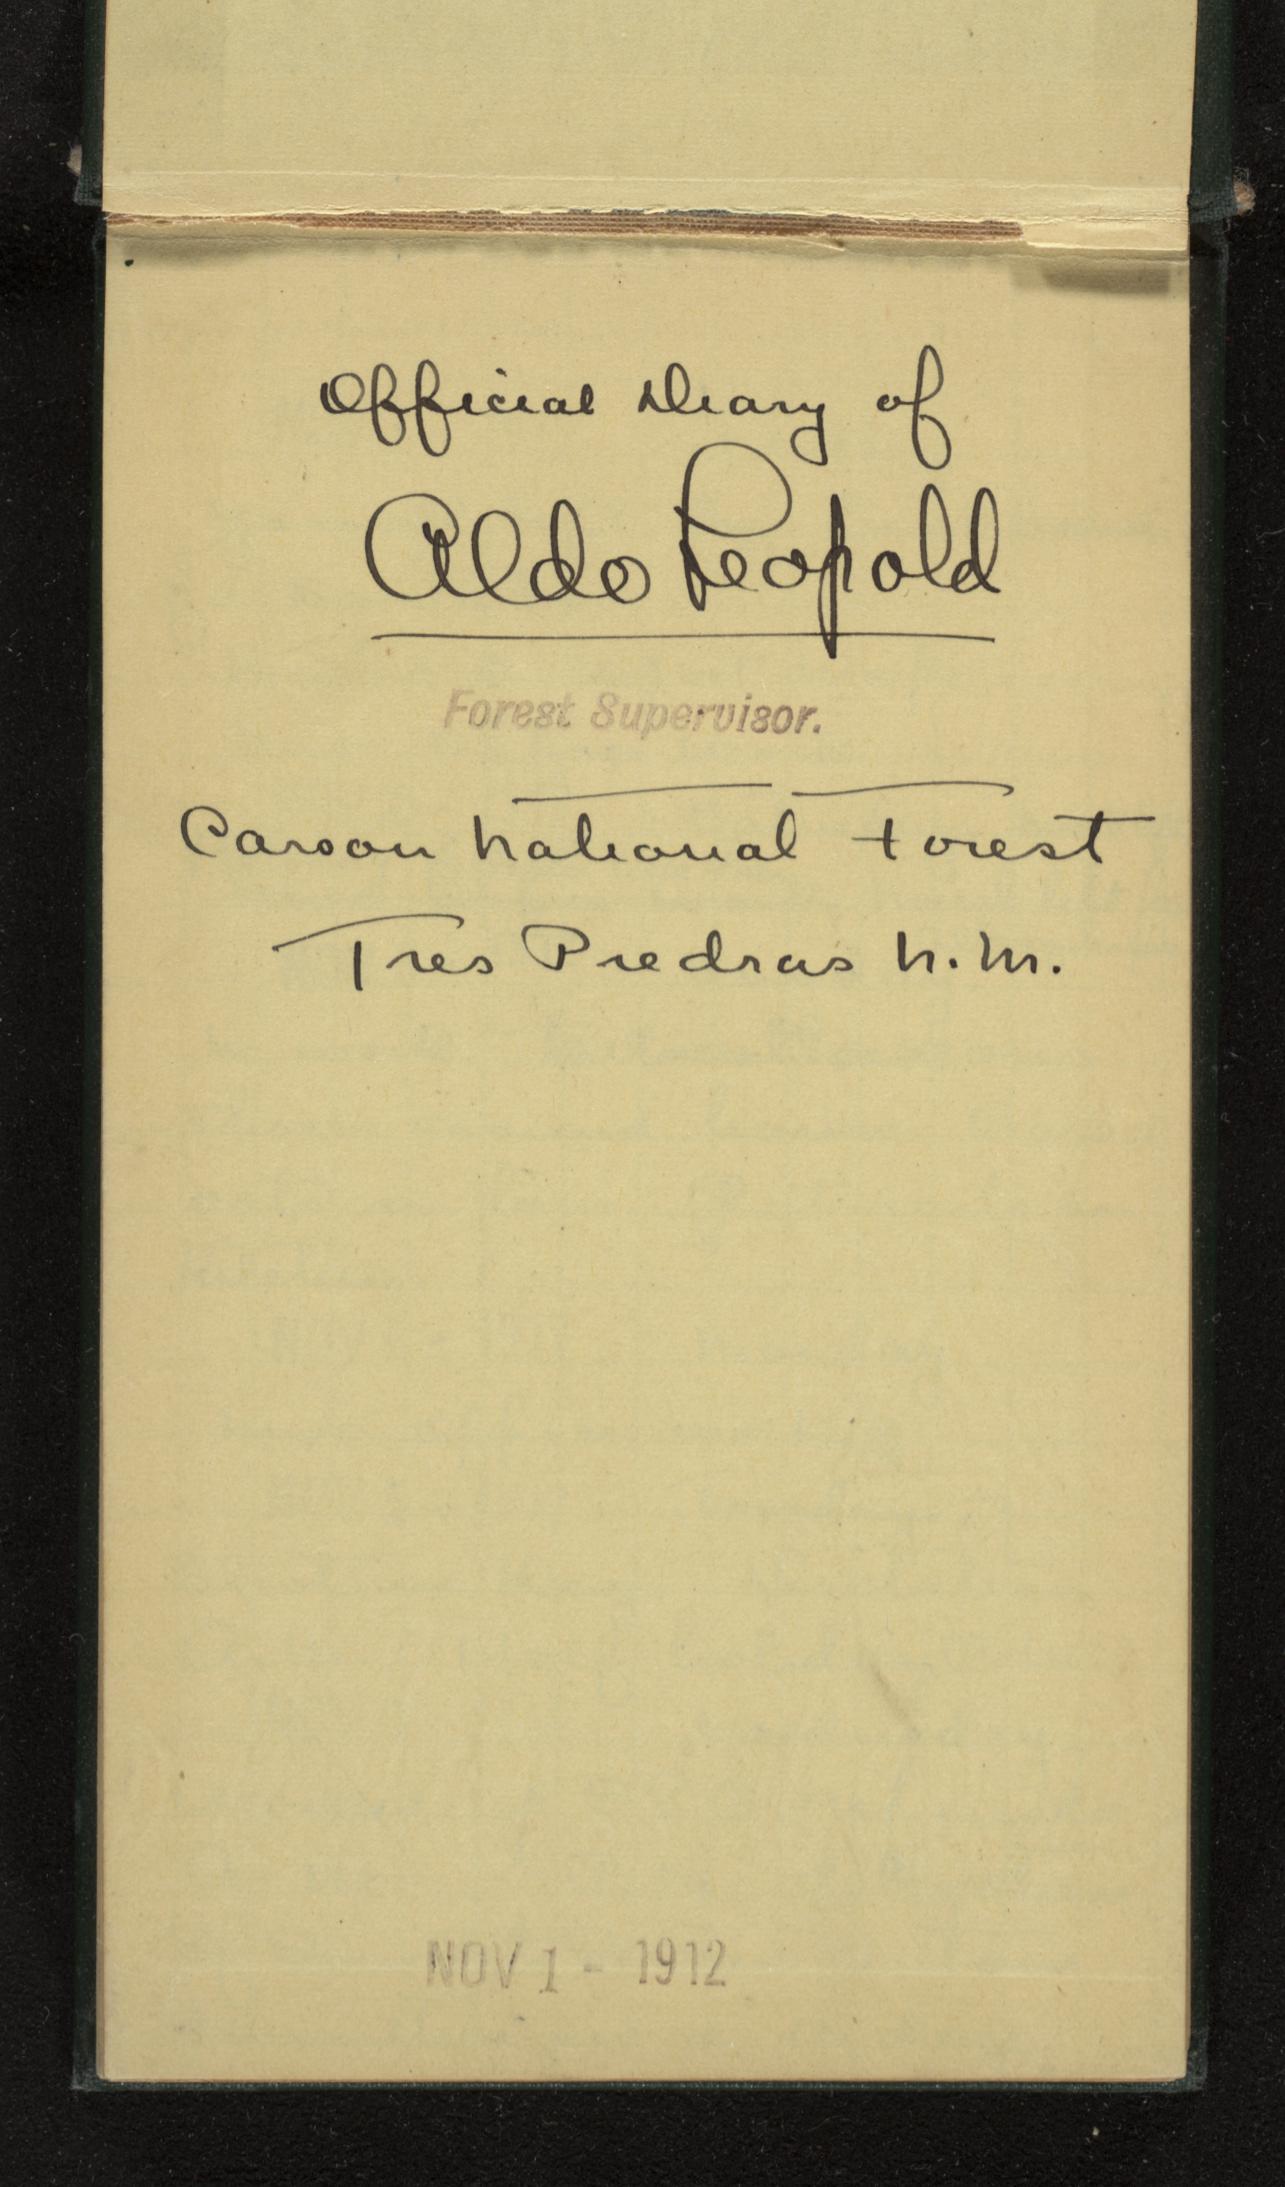 Official Diary of
Aldo Leopold
Forest Supervisor.
Carson National Forest
Tres Piedras N.M.
NOV 1 - 1912